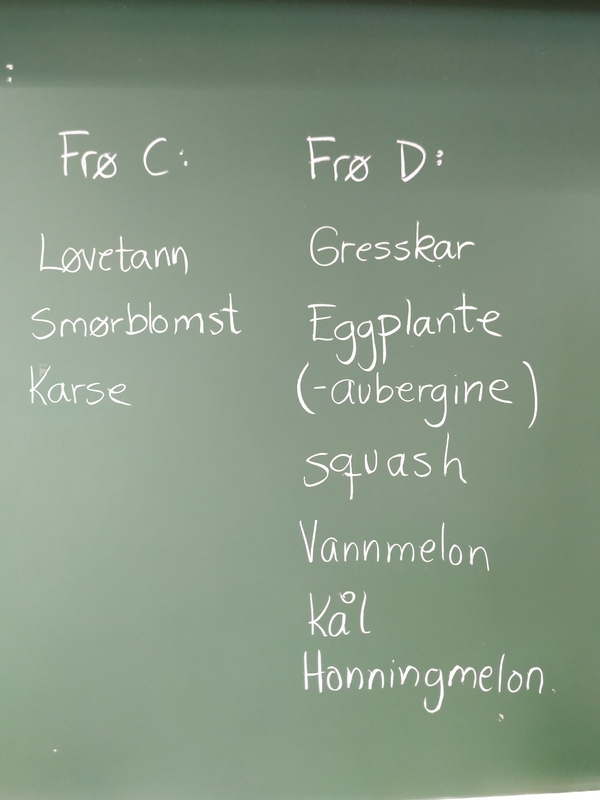 :
Frø C:
Løvetann
Smørblomst
Karse
Frø D:
Gresskar
Eggplante
(-aubergine)
squash
Vannmelon
Kål
Honningmelon.